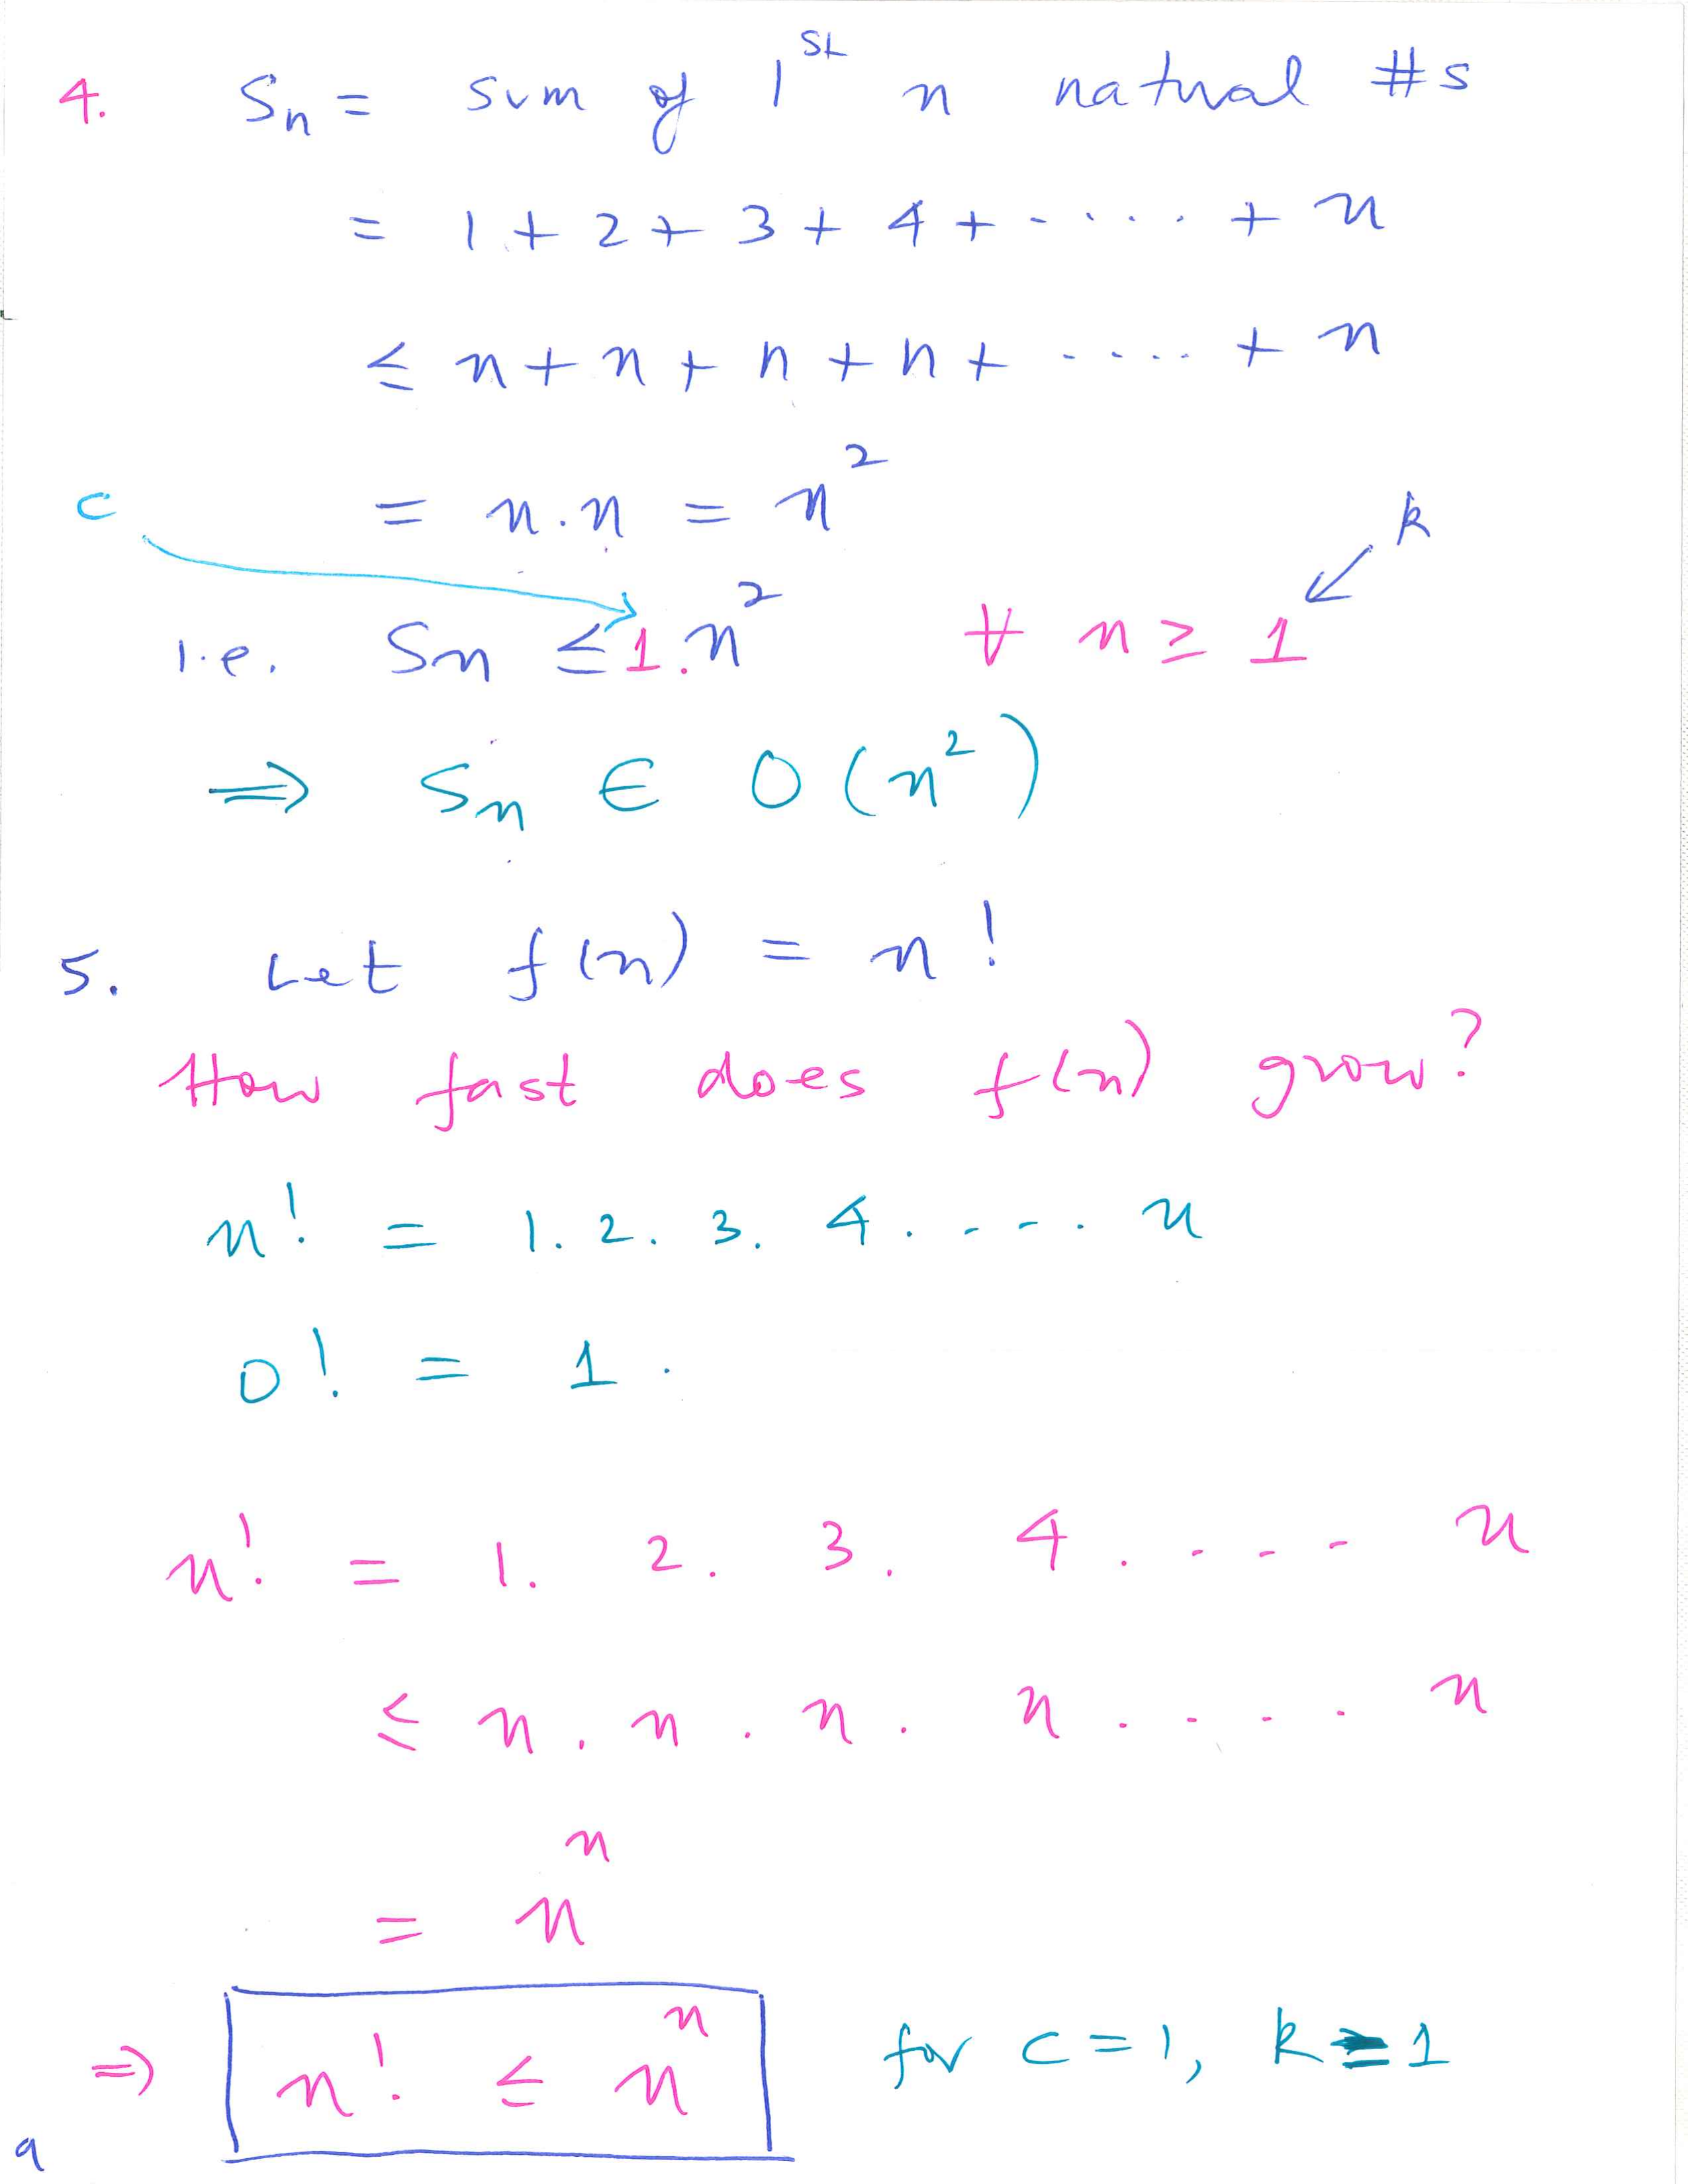 4. Sn = sum of 1st n natural #s
= 1 + 2 + 3 + 4 + - .... + n
≤ n + n + n + n + ..... + n
c = n.n = n² k
i.e. Sn ≤ 1.n² ∀ n ≥ 1
⇒ Sn ∈ O(n²)
5. Let f(n) = n!
How fast does f(n) grow?
n! = 1. 2. 3. 4. - - - . n
0! = 1.
n! = 1. 2. 3. 4. - - - - n
≤ n. n. n. n. - - - . n
= nⁿ
⇒ n! ≤ nⁿ for c = 1, k = 1
9